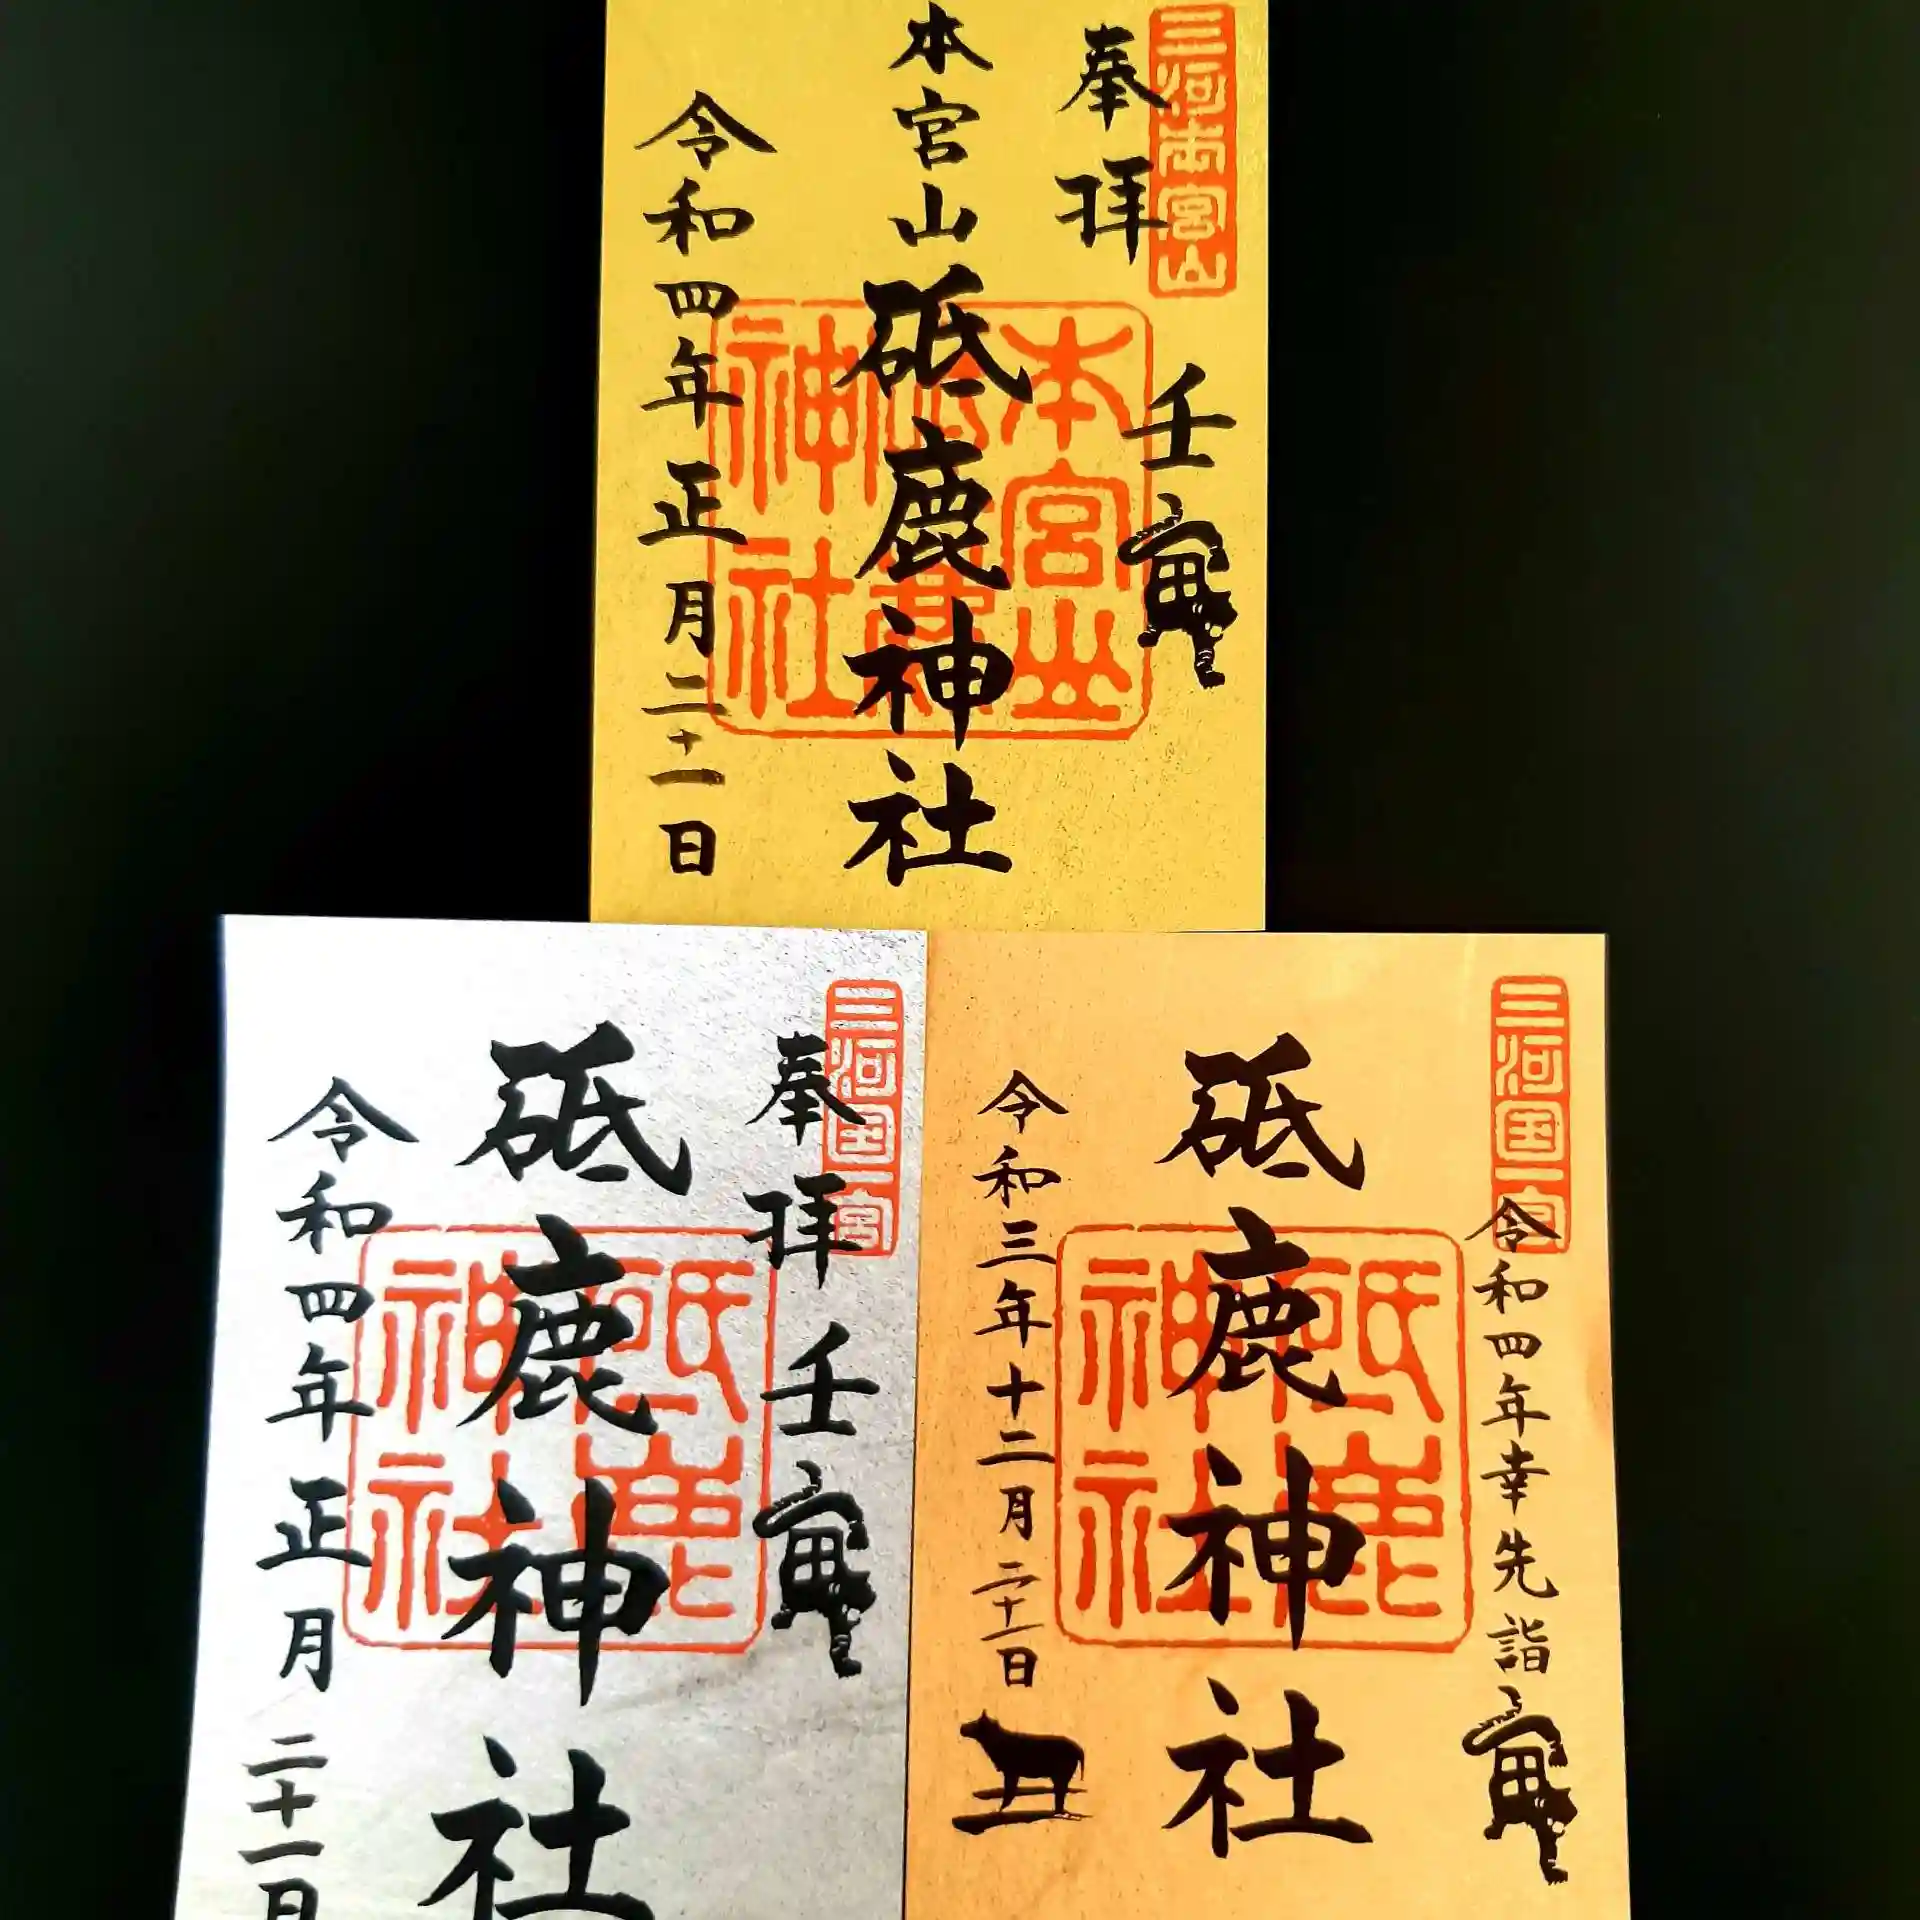 三河本宮山
奉拝
壬寅
本宮山
砥鹿神社
本宮山
神社
令和四年正月二十一日
三河国一宮
奉拝
壬寅
砥鹿神社
砥鹿神社
令和四年正月二十一日
三河国一宮
令和四年幸先詣
寅
砥鹿神社
砥鹿神社
令和三年十二月二十一日
丑